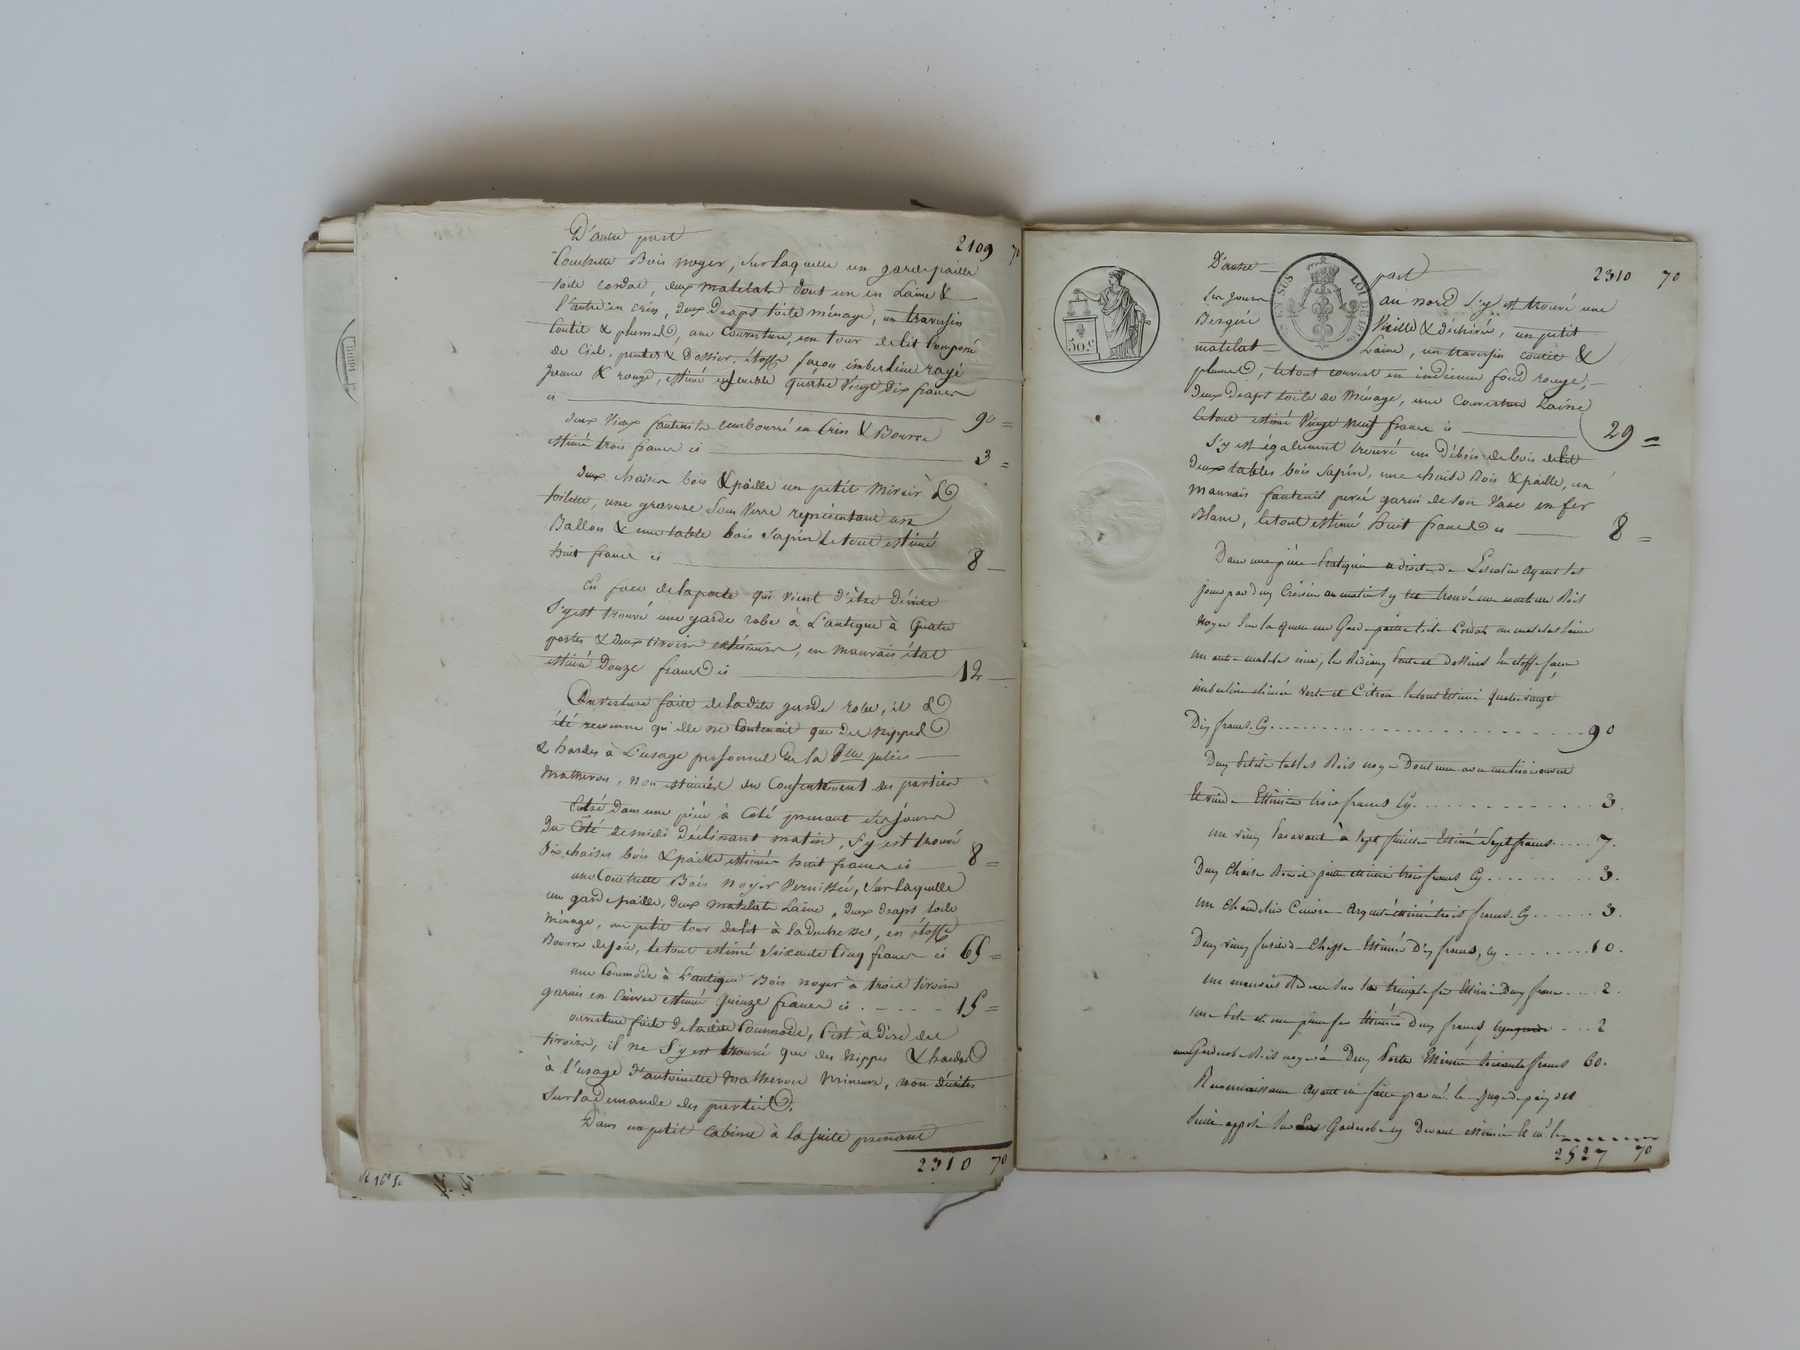 D'autre part 2109 70
Couchette Bois noyer, sur laquelle un garde paille
toile cordat, deux matelats dont un en Laine &
l'autre en crin, deux draps toile ménage, un traversin
Coutit & plumes, une Couverture, un tour de lit Composé
de Ciel, pentes & Dossier, étoffe façon imberline rayé
jaune & rouge, estimé ensemble quatre Vingt Dix francs
ci 90 =
deux Vieux fauteuils rembourré en Crin & Bourre
estimés trois francs ci 3 =
deux chaises bois & paille un petit Miroir à
toilette, une gravure Sous Verre représentant un
Ballon & une table bois Sapin le tout estimé
huit francs ci 8
En face de la porte qui vient d'être décrite
S'y est trouvé une garde robe à L'antique à Quatre
portes & deux tiroirs extérieurs, en mauvais état
estimé Douze francs ci 12
Ouverture faite de ladite garde robe, il a
été reconnu qu'elle ne Contenait que des Nippes
& hardes à L'usage personnel de la Dlle julie
Matheron, Non estimées du Consentement des parties
Entré Dans une pièce à Coté prenant ses jours
Du Coté de midi Déclinant matin, S'y est trouvé
Six chaises bois & paille estimées huit francs ci 8 =
une Couchette Bois noyer Vernissée, Sur laquelle
un garde paille, deux matelats Laine, deux draps toile
Ménage, un petit tour de lit à la Duchesse, en étoffe
Bourre de Soie, le tout estimé Soixante Cinq francs ci 65 =
une Commode à L'antique Bois noyer à trois tiroirs
garnis en Cuivre estimée Quinze francs ci . - - - - 15 =
ouverture faite de ladite Commode, C'est à Dire des
tiroirs, il ne S'y est trouvé que des Nippes & hardes
à l'usage d'antoinette Matheron Mineure, non décrites
Sur la demande des parties.
Dans un petit Cabinet à la Suite prenant
2310 70
D'autre part 2310 70
Ses jours au nord S'y est trouvé une
Bergère Vieille & déchirée, un petit
matelat Laine, un traversin coutit &
plumes, le tout couvert en indienne fond rouge,
deux draps toile de Ménage, une Couverture Laine
le tout estimé Vingt Neuf francs ci 29 =
S'y est également trouvé un Débris de bois de lit
deux tables bois Sapin, une chaise Bois & paille, un
Mauvais fauteuil percé garni de Son Vase en fer
Blanc, le tout estimé huit francs ci 8 =
Dans une pièce pratiquée a droite de Lescalier ayant Ses
jours par deux Croisées au matin S'y est trouvé une couchette Bois
Noyer Sur la quelle une Garde paille toile Cordat un matelas laine
un autre matelas crin, les Rideaux pente et dossiers En étoffe façon
imberline vert et Citron le tout Estimé quatre vingt
Dix francs Cy . . . . . . . . . . 90
Deux petites tables Bois noyer Dont une avec un tiroir
Estimées trois francs Cy . . . . . . . 3.
un vieux Paravant à Sept feuilles Estimé Sept francs . . . . . 7.
Deux Chaises Bois et paille estimées trois francs Cy . . . . . . 3.
un Chandelier Cuivre Argenté estimé trois francs Cy . . . . . . 3.
Deux vieux fusils de Chasse Estimés Dix francs, Cy . . . . . . . 10.
un mauvais Rideau Sur Sa tringle fer Estimé Deux francs . . . 2.
une Pele et une pince fer Estimées Deux francs . . . 2
une Garderobe Bois noyer à Deux Portes Estimée Soixante francs 60.
Reconnaissance Ayant été faite par mr. le Juge de paix du
Scellé apposé Sur La Garderobe cy Devant estimée Et mr. le
2527 70
50 c
EN SUS LOI DE